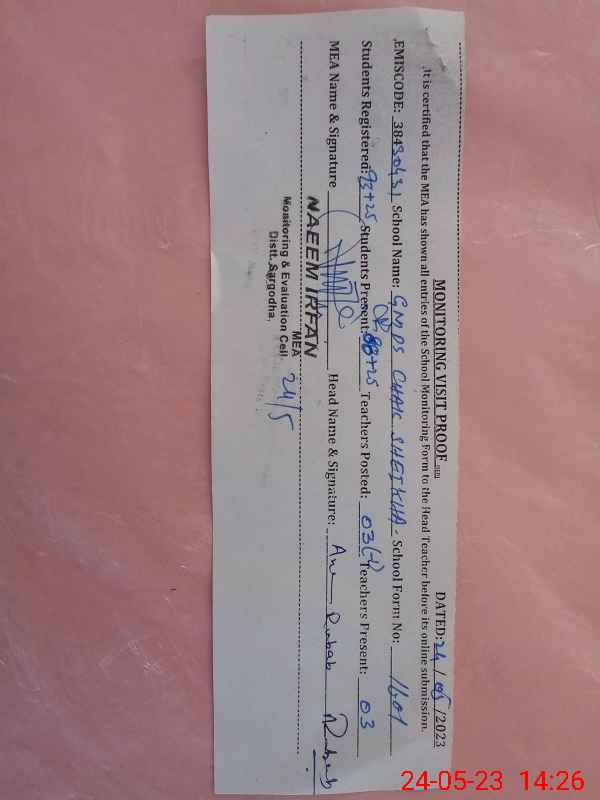 MONITORING VISIT PROOF DATED: 24/05/2023
It is certified that the MEA has shown all entries of the School Monitoring Form to the Head Teacher before its online submission.
EMISCODE: 38430431 School Name: GMPS CHAK SHEIKHA School Form No: 1601
Students Registered: 93+25 Students Present: 88+25 Teachers Posted: 03(-1) Teachers Present: 03
MEA Name & Signature Head Name & Signature: Rubab Rubab
NAEEM IRFAN
MEA
Monitoring & Evaluation Cell
Distt. Sargodha.
24/5
24-05-23 14:26